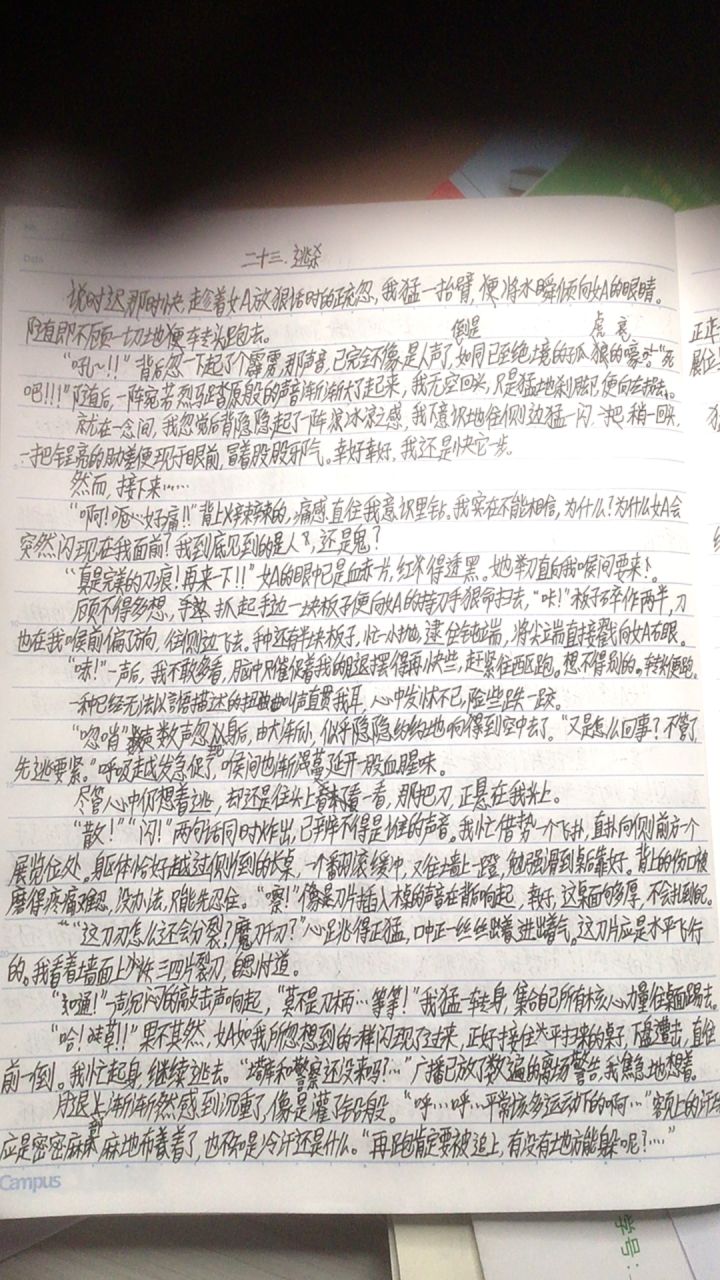 二十三.逃杀
说时迟那时快,趁着女A放狠话时的疏忽,我猛一抬臂,便将水瞬倾向女A的眼睛。
随即不顾一切地便车专头跑去。
倒是 虎哀
“吼~!!”背后忽一下起了个霹雳,那声音,已完全不像是人声了,如同已至绝境的孤狼的嚎 “死
吧!!!”随后,一阵宛若烈马踏原般的声音渐渐大了起来,我无空回头,只是猛地刹脚,便向左拐去。
就在一念间,我忽觉后背隐隐起了一阵冰凉之感,我下意识地往侧边猛一闪 稍一回头,
一把锃亮的 便现于眼前,冒着股股邪气。幸好幸好,我还是快它一步。
然而,接下来……
“啊!呃…好痛!!”背上火辣辣的,痛感直往我意识里钻。我实在不能相信,为什么?为什么女A会
突然闪现在我面前?我到底见到的是人,还是鬼?
“真是完美的刀痕!再来一下!!”女A的眼中已是血赤一片,红得透黑。她举刀直向我喉间要来
顾不得多想,抓起手边一块板子便向女A的持刀手狠命扫去,“咔!”板子碎作两半,刀
也在我喉前偏了方向,往侧边飞去。手中还有半块板子,忙一小抛,逮住钝端,将尖尖端直接戳向女A右眼。
“咔!”一声后,我不敢多看,脑中只催促着我的腿摆得再快些,赶紧往西区跑。想不得别的。转身便跑。
一种已经无法以言语描述的扭曲叫声直贯我耳,心中发怵不已,险些跌一跤。
“忽哨” 数声忽从身后,由大渐小,似乎隐隐约约地响得到空中去了。“又是怎么回事?不管了,
先逃要紧。”呼吸越发急促了,喉间也渐渐蔓延开一股血腥味。
尽管心中仍想着逃,却还是往头上 看一看,那把刀,正悬在我头上。
“散!”“闪!”两句话同时炸出,已辨不得是谁的声音。我忙借势一个飞扑,直扑向侧前方一个
展览位处。躯体恰好越过侧倒的长桌,一个翻滚缓冲,又往墙上一蹬,勉强滑到桌后靠好。背上的伤口被
磨得疼痛难忍,没办法,只能先忍住。“嚓!”像是刀片插入木桌的声音在背后响起,幸好,这桌面够厚,不会扎到的。
“这刀刃怎么还会分裂?魔刀吗?”心脏跳得正猛,口中正一丝丝 进出着气。这刀片应是水平飞行
的。我看着墙面上 三四片裂刀,自思忖道。
“知通!”一声沉闷的敲击声响起,“莫不是刀柄…等等!”我猛一转身,集合自己所有核心力量往桌面踢去。
“哈!哇草!!”果不其然,女A如我所忽想到的一样闪现了过来,正好接住水平扫来的桌子,下盘遭击,直往
前一倒。我忙起身,继续逃去。“塔库和警察还没来吗?…”广播已放了数遍的离场警告,我焦急地想着。
用退上渐渐然感到沉重了,像是灌了铅般。“呼…呼…平常该多运动下的啊…”额头上的汗
应是密密麻麻地布着了,也不知是冷汗还是什么。“再跑肯定要被追上,有没有地方能躲呢?…”
Campus
学号: